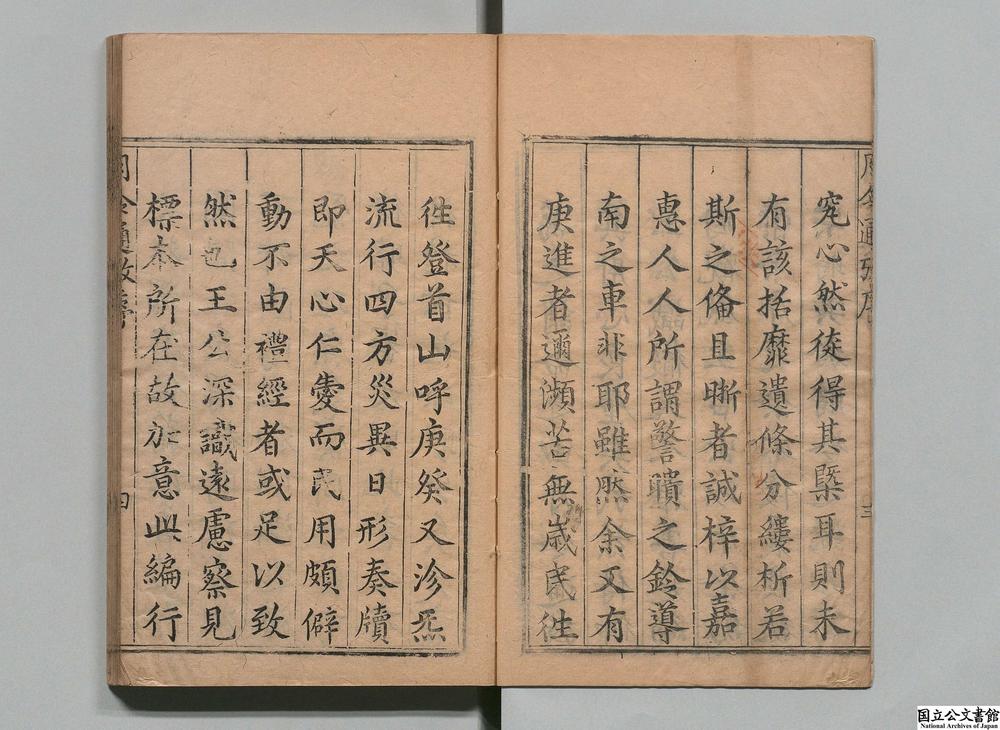 究心然徒得其槩耳則未
有該括靡遺條分縷析若
斯之俻且晰者誠梓以嘉
惠人人所謂警瞶之鈴導
南之車非耶雖然余又有
庚進者邇瀕苦無歲民徃
徃登首山呼庚癸又沴炁
流行四方災異日形奏牘
即天心仁愛而民用頗僻
動不由禮經者或足以致
然也王公深識遠慮察見
標本所在故加意此編行
四
国立公文書館
National Archives of Japan